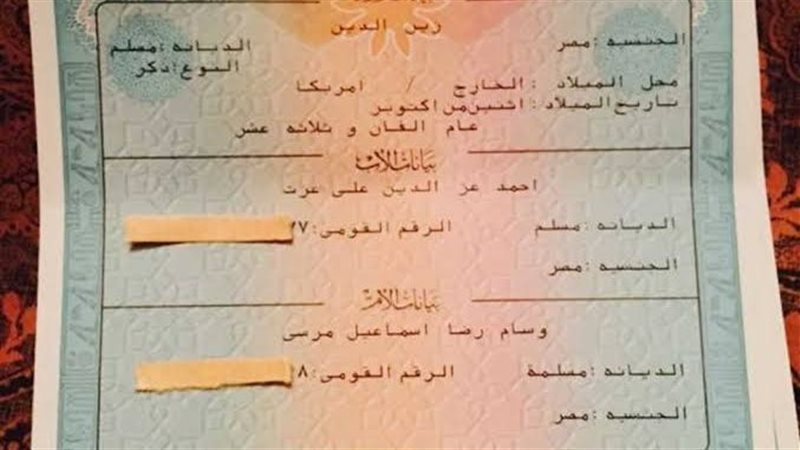 زين الدين
الجنسيه :مصر
الديانه :مسلم
النوع :ذكر
محل الميلاد :الخارج / امريكا
تاريخ الميلاد :اثنين من اكتوبر
عام الفان و ثلاثه عشر
بيانات الأب
احمد عز الدين على عزت
الديانه :مسلم الرقم القومى :٢٧
الجنسيه :مصر
بيانات الأم
وسام رضا اسماعيل مرسى
الديانه :مسلمة الرقم القومى :٢٨
الجنسيه :مصر